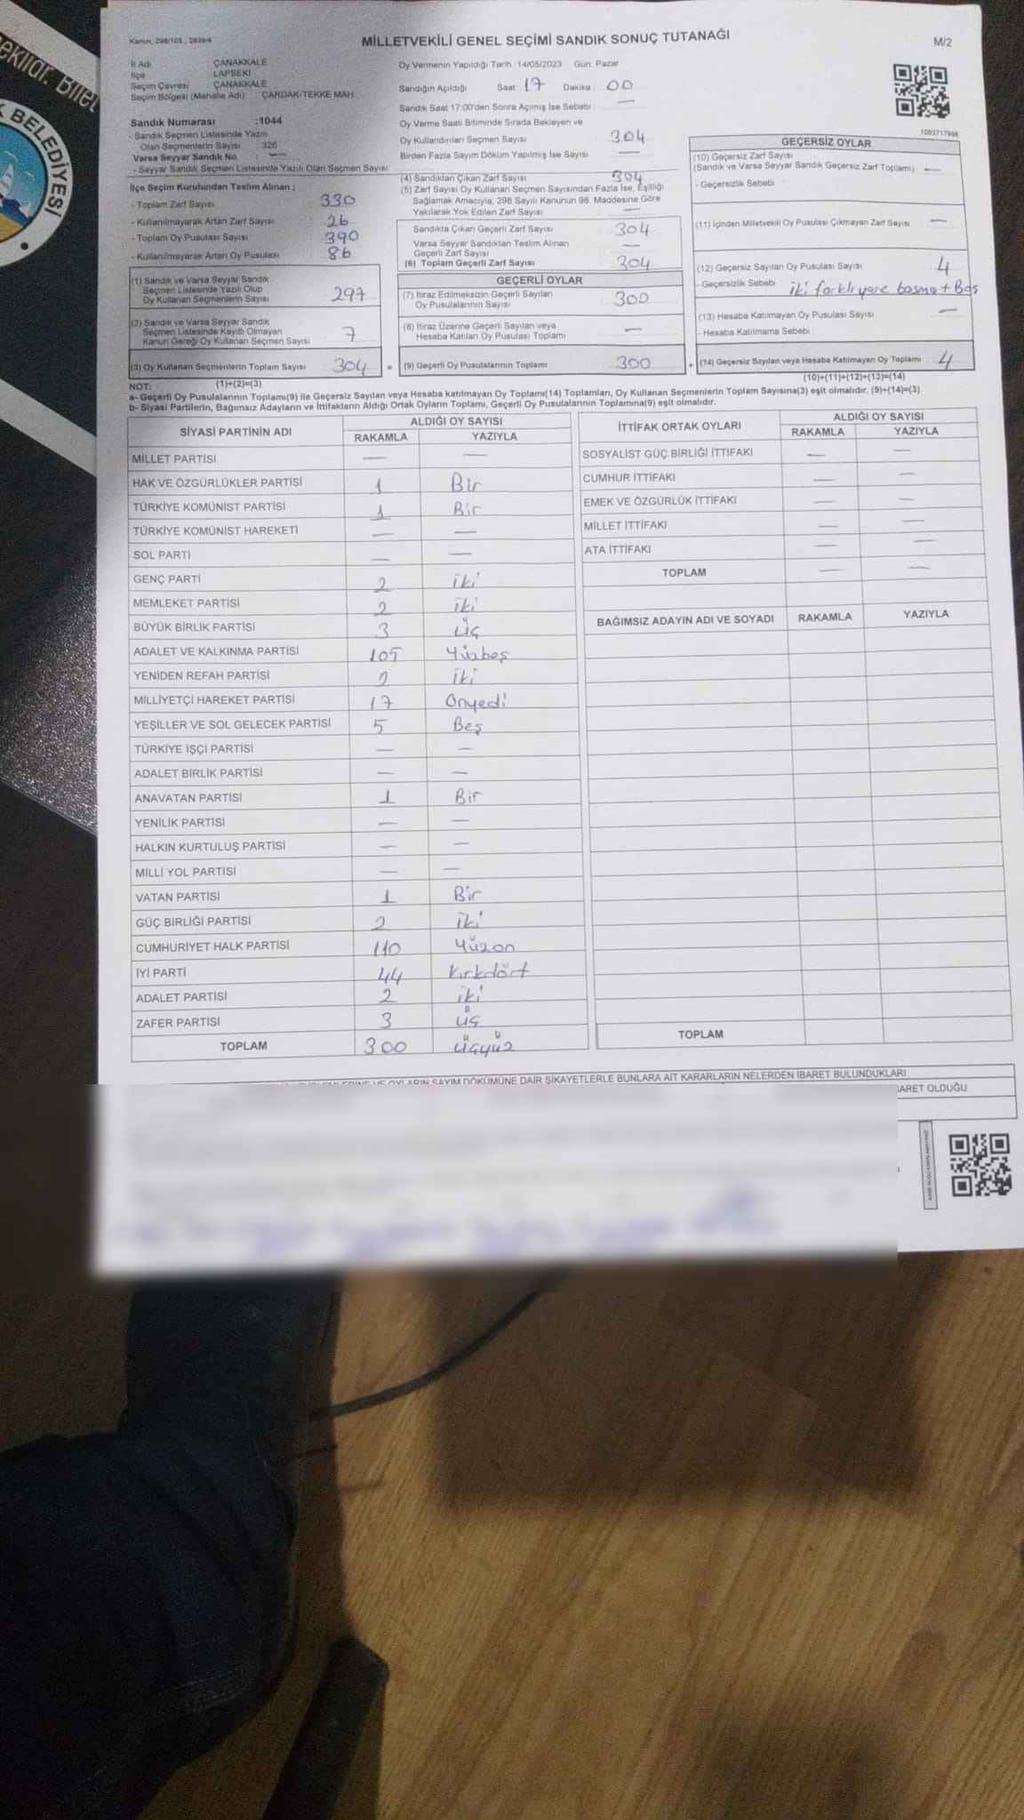 BELEDİYESİ
Kanun, 298/105, 2839/4
MİLLETVEKİLİ GENEL SEÇİMİ SANDIK SONUÇ TUTANAĞI
M/2
İl Adı : ÇANAKKALE
İlçe : LAPSEKİ
Seçim Çevresi : ÇANAKKALE
Seçim Bölgesi (Mahalle Adı) : ÇARDAK-TEKKE MAH.
Sandık Numarası :1044
- Sandık Seçmen Listesinde Yazılı
Olan Seçmenlerin Sayısı : 326
Varsa Seyyar Sandık No : —
- Seyyar Sandık Seçmen Listesinde Yazılı Olan Seçmen Sayısı
İlçe Seçim Kurulundan Teslim Alınan ;
- Toplam Zarf Sayısı 330
- Kullanılmayarak Artan Zarf Sayısı 26
- Toplam Oy Pusulası Sayısı 390
- Kullanılmayarak Artan Oy Pusulası 86
(1) Sandık ve Varsa Seyyar Sandık
Seçmen Listesinde Yazılı Olup
Oy Kullanan Seçmenlerin Sayısı 297
(2) Sandık ve Varsa Seyyar Sandık
Seçmen Listesinde Kayıtlı Olmayan
Kanun Gereği Oy Kullanan Seçmen Sayısı 7
(3) Oy Kullanan Seçmenlerin Toplam Sayısı 304
Oy Vermenin Yapıldığı Tarih :14/05/2023 Gün: Pazar
Sandığın Açıldığı Saat : 17 Dakika : 00
Sandık Saat 17:00'den Sonra Açılmış İse Sebebi : —
Oy Verme Saati Bitiminde Sırada Bekleyen ve
Oy Kullandırılan Seçmen Sayısı 304
Birden Fazla Sayım Döküm Yapılmış İse Sayısı —
(4) Sandıktan Çıkan Zarf Sayısı 304
(5) Zarf Sayısı Oy Kullanan Seçmen Sayısından Fazla İse, Eşitliği
Sağlamak Amacıyla, 298 Sayılı Kanunun 98. Maddesine Göre
Yakılarak Yok Edilen Zarf Sayısı —
Sandıkta Çıkan Geçerli Zarf Sayısı 304
Varsa Seyyar Sandıktan Teslim Alınan
Geçerli Zarf Sayısı —
(6) Toplam Geçerli Zarf Sayısı 304
GEÇERLİ OYLAR
(7) İtiraz Edilmeksizin Geçerli Sayılan
Oy Pusulalarının Sayısı 300
(8) İtiraz Üzerine Geçerli Sayılan veya
Hesaba Katılan Oy Pusulası Toplamı —
(9) Geçerli Oy Pusulalarının Toplamı 300
GEÇERSİZ OYLAR
(10) Geçersiz Zarf Sayısı
(Sandık ve Varsa Seyyar Sandık Geçersiz Zarf Toplamı) —
- Geçersizlik Sebebi
(11) İçinden Milletvekili Oy Pusulası Çıkmayan Zarf Sayısı —
(12) Geçersiz Sayılan Oy Pusulası Sayısı 4
- Geçersizlik Sebebi iki farklı yere basma + Boş
(13) Hesaba Katılmayan Oy Pusulası Sayısı —
- Hesaba Katılmama Sebebi
(14) Geçersiz Sayılan veya Hesaba Katılmayan Oy Toplamı 4
NOT: (1)+(2)=(3)
(10)+(11)+(12)+(13)=(14)
a- Geçerli Oy Pusulaları(9) ile Geçersiz Sayılan veya Hesaba katılmayan Oy Toplamı(14) Toplamları, Oy Kullanan Seçmenlerin Toplam Sayısına(3) eşit olmalıdır. (9)+(14)=(3)
b- Siyasi Partilerin, Bağımsız Adayların ve İttifakların Aldığı Ortak Oyların Toplamı, Geçerli Oy Pusulalarının Toplamına(9) eşit olmalıdır.
SİYASİ PARTİNİN ADI ALDIĞI OY SAYISI
RAKAMLA YAZIYLA
MİLLET PARTİSİ — —
HAK VE ÖZGÜRLÜKLER PARTİSİ 1 Bir
TÜRKİYE KOMÜNİST PARTİSİ 1 Bir
TÜRKİYE KOMÜNİST HAREKETİ — —
SOL PARTİ — —
GENÇ PARTİ 2 iki
MEMLEKET PARTİSİ 2 iki
BÜYÜK BİRLİK PARTİSİ 3 üç
ADALET VE KALKINMA PARTİSİ 105 Yüzbeş
YENİDEN REFAH PARTİSİ 2 iki
MİLLİYETÇİ HAREKET PARTİSİ 17 Onyedi
YEŞİLLER VE SOL GELECEK PARTİSİ 5 Beş
TÜRKİYE İŞÇİ PARTİSİ — —
ADALET BİRLİK PARTİSİ — —
ANAVATAN PARTİSİ 1 Bir
YENİLİK PARTİSİ — —
HALKIN KURTULUŞ PARTİSİ — —
MİLLİ YOL PARTİSİ — —
VATAN PARTİSİ 1 Bir
GÜÇ BİRLİĞİ PARTİSİ 2 iki
CUMHURİYET HALK PARTİSİ 110 Yüzon
İYİ PARTİ 44 Kırkdört
ADALET PARTİSİ 2 iki
ZAFER PARTİSİ 3 üç
TOPLAM 300 üçyüz
İTTİFAK ORTAK OYLARI ALDIĞI OY SAYISI
RAKAMLA YAZIYLA
SOSYALİST GÜÇ BİRLİĞİ İTTİFAKI — —
CUMHUR İTTİFAKI — —
EMEK VE ÖZGÜRLÜK İTTİFAKI — —
MİLLET İTTİFAKI — —
ATA İTTİFAKI — —
TOPLAM — —
BAĞIMSIZ ADAYIN ADI VE SOYADI RAKAMLA YAZIYLA
TOPLAM
OYLARIN SAYIM DÖKÜMÜNE DAİR ŞİKAYETLERLE BUNLARA AİT KARARLARIN NELERDEN İBARET BULUNDUKLARI
BARET OLDUĞU